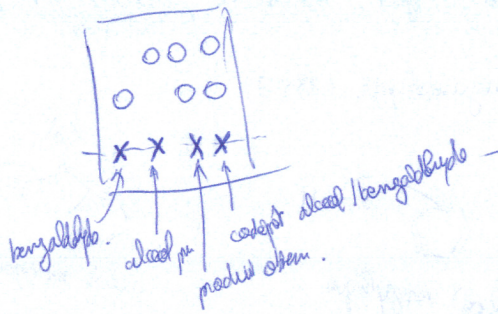 benzaldhyde.
alcool pur
produit obtenu.
codépôt alcool / benzaldéhyde